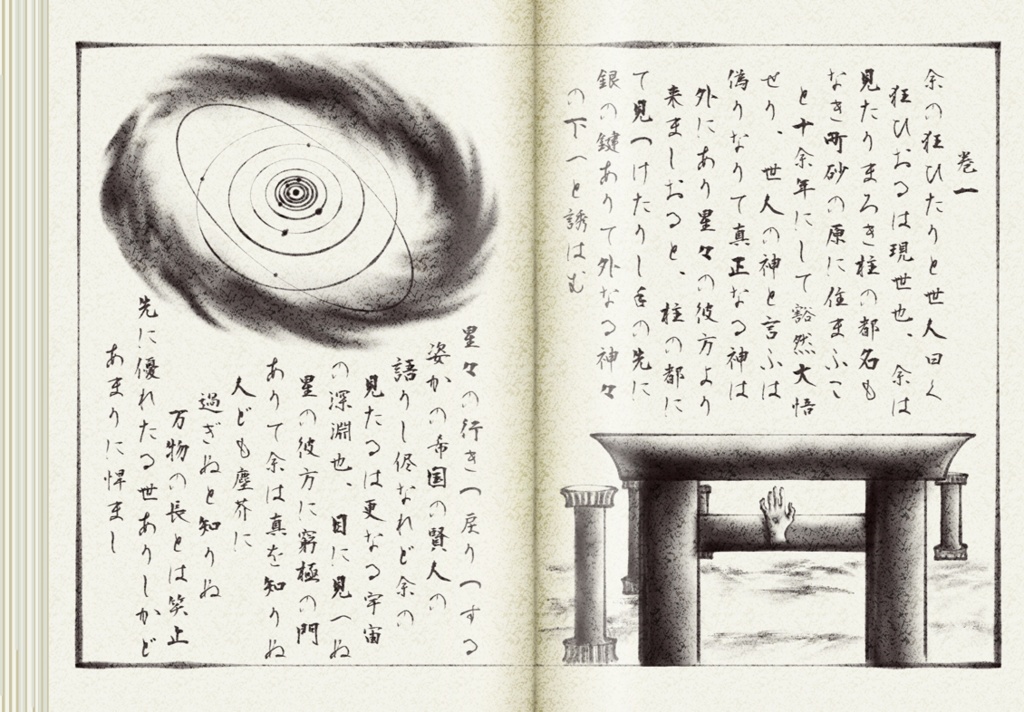 巻一
余の狂ひたりと世人曰く
狂ひおるは現世也、余は
見たりまろき柱の都名も
なき所砂の原に住まふこ
と十余年にして豁然大悟
せり、世人の神と言ふは
偽りなりて真正なる神は
外にあり星々の彼方より
来ましおると、柱の都に
て見つけたりし手の先に
銀の鍵ありて外なる神々
の下へと誘はむ
星々の行きつ戻りつする
姿かの帝国の賢人の
語りし侭なれど余の
見たるは更なる宇宙
の深淵也、目に見へぬ
星の彼方に窮極の門
ありて余は真を知りぬ
人ども塵芥に
過ぎぬと知りぬ
万物の長とは笑止
先に優れたる世ありしかど
あまりに悍まし